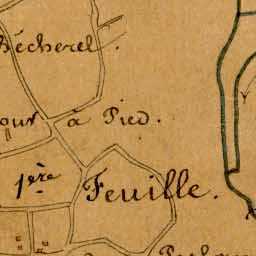 Bécherel.
à Pied.
1ère Feuille.